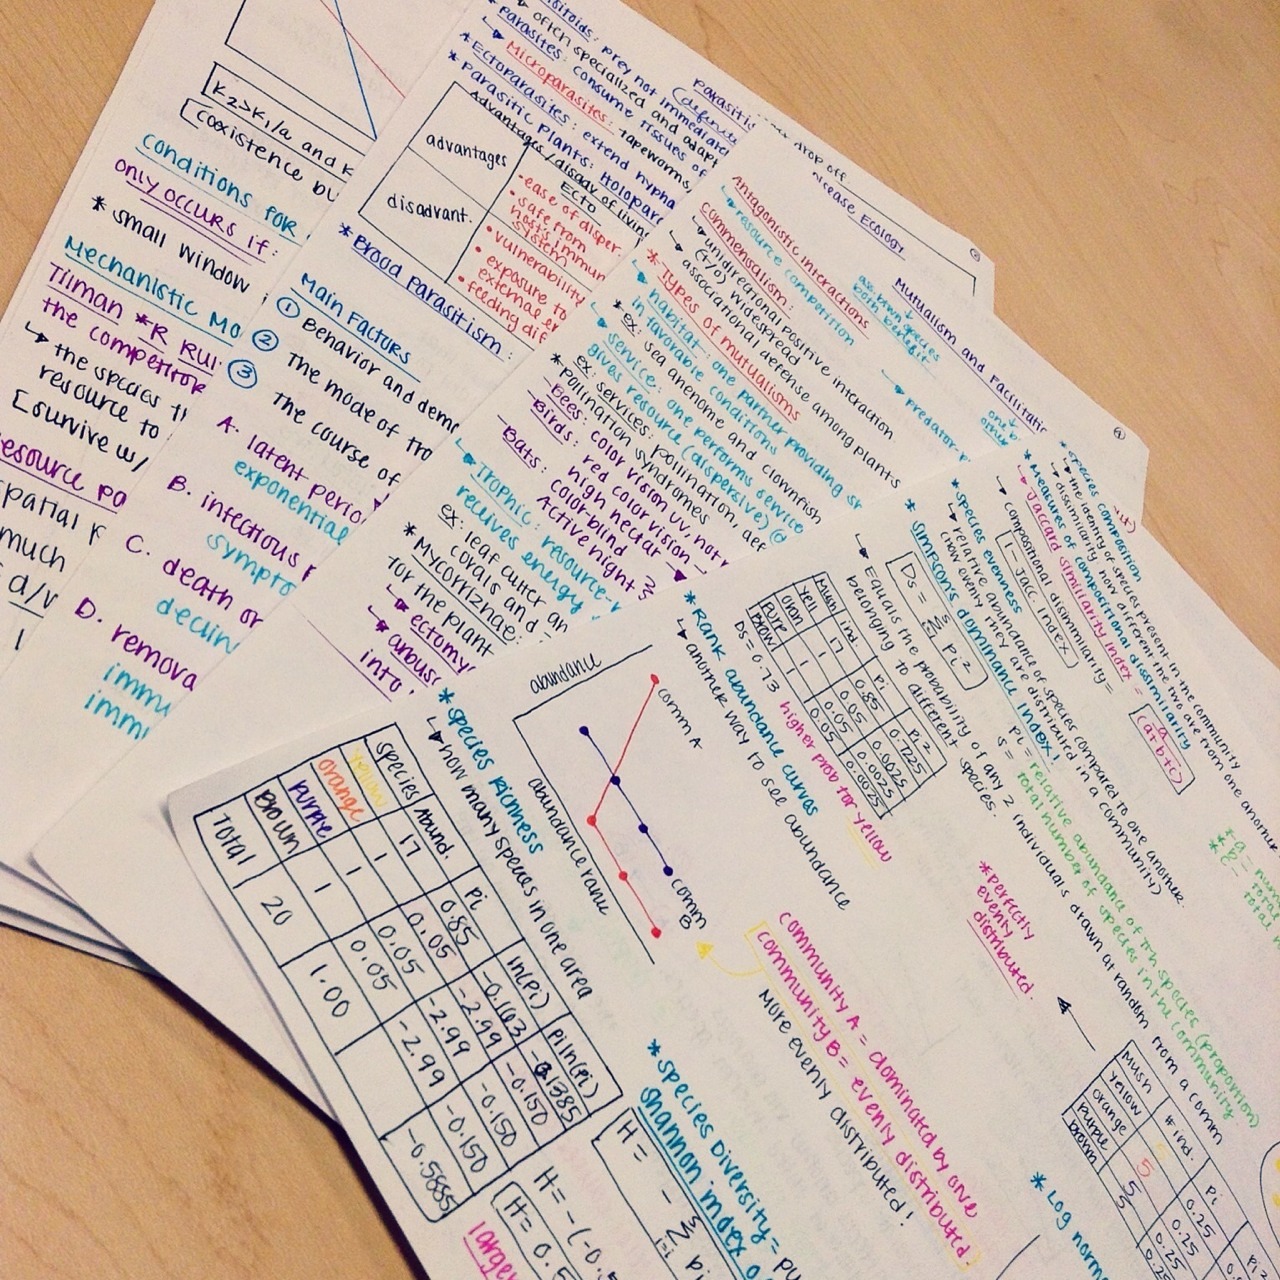 K2>K1/a and K
coexistence bu
conditions for
only occurs if:
* small window
Mechanistic Mo
Tilman *R Rul
the competitor
↳ the species th
resource to
[survive w/
esource po
spatial
much
d/v
1
Main Factors
① Behavior and demo
② The mode of tra
③ The course of
A. latent perio
exponential
B. infectious p
sympto
C. death or
declin
D. remova
immu
immi
sitoids: prey not immediatel
↳ often specialized and adapt
* parasites: consume tissues of
↳ Microparasites: tapeworms,
* Ectoparasites: extend hypha
* parasitic plants: Holopara
Advantages/disadv of livin
Ecto
advantages
• ease of disper
• safe from
host's immun
system
disadvant.
• vulnerability
• exposure to
external e
• feeding dif
* Brood parasitism:
parasiti
(define
drop off
sease Ecology
Mutualism and Facilitati
Antagonistic interactions
↳ resource competition
↳ predator
both benefit
commensalism:
↳ unidirectional positive interaction
(+/0) widespread
↳ associational defense among plants
* Types of mutualisms
↳ habitat: one partner providing s
in favorable conditions
* ex: sea anenome and clownfish
↳ service: one performs service
gives resource (dispersive)
* ex: services: pollination, def
* pollination syndromes
Bees: color vision UV, not
Birds: red color vision
high nectar
Bats: colorblind
Active night
↳ Trophic: resource-
receives energy
ex: leaf cutter an
corals and
* Mycorrizhae:
for the plant
↳ ectomy
↳ arbus
into
* species composition
↳ the identity of species present in the community
↳ dissimilarity how different the two are from one another
* Measures of compositional dissimilarity
↳ Jaccard similarity index = a/(a+b+c)
↳ compositional dissimilarity =
1 - Jacc. index
* species evenness
↳ relative abundance of species compared to one another.
(how evenly they are distributed in a community)
* Simpson's dominance index!
Ds = Σ Pi²
Pi = relative abundance of ith species (proportion)
S = total number of species in the community
↳ Equals the probability of any 2 individuals drawn at random from a comm
belonging to different species.
Mush ind. Pi Pi²
yell 17 0.85 0.7225
oran 1 0.05 0.0025
purp 1 0.05 0.0025
brow 1 0.05 0.0025
Ds = 0.73 higher prob for yellow
* perfectly
evenly
distributed.
Mush # ind. Pi
yellow 5 0.25
orange 5 0.25
purple 5 0.25
brown 5
* Rank abundance curves
↳ another way to see abundance
abundance
comm A
comm B
abundance rank
community A = dominated by one
community B = evenly distributed.
More evenly distributed!
* Log norm
* species richness
↳ how many species in one area
species Abund. Pi ln(Pi) Piln(Pi)
yellow 17 0.85 -0.163 -0.1385
orange 1 0.05 -2.99 -0.150
purple 1 0.05 -2.99 -0.150
Brown 1 0.05 -2.99 -0.150
TOTAL 20 1.00 -0.5885
* species Diversity =
Shannon index
H = - Σ Pi
H = -(-0.5
H = 0.5
larger